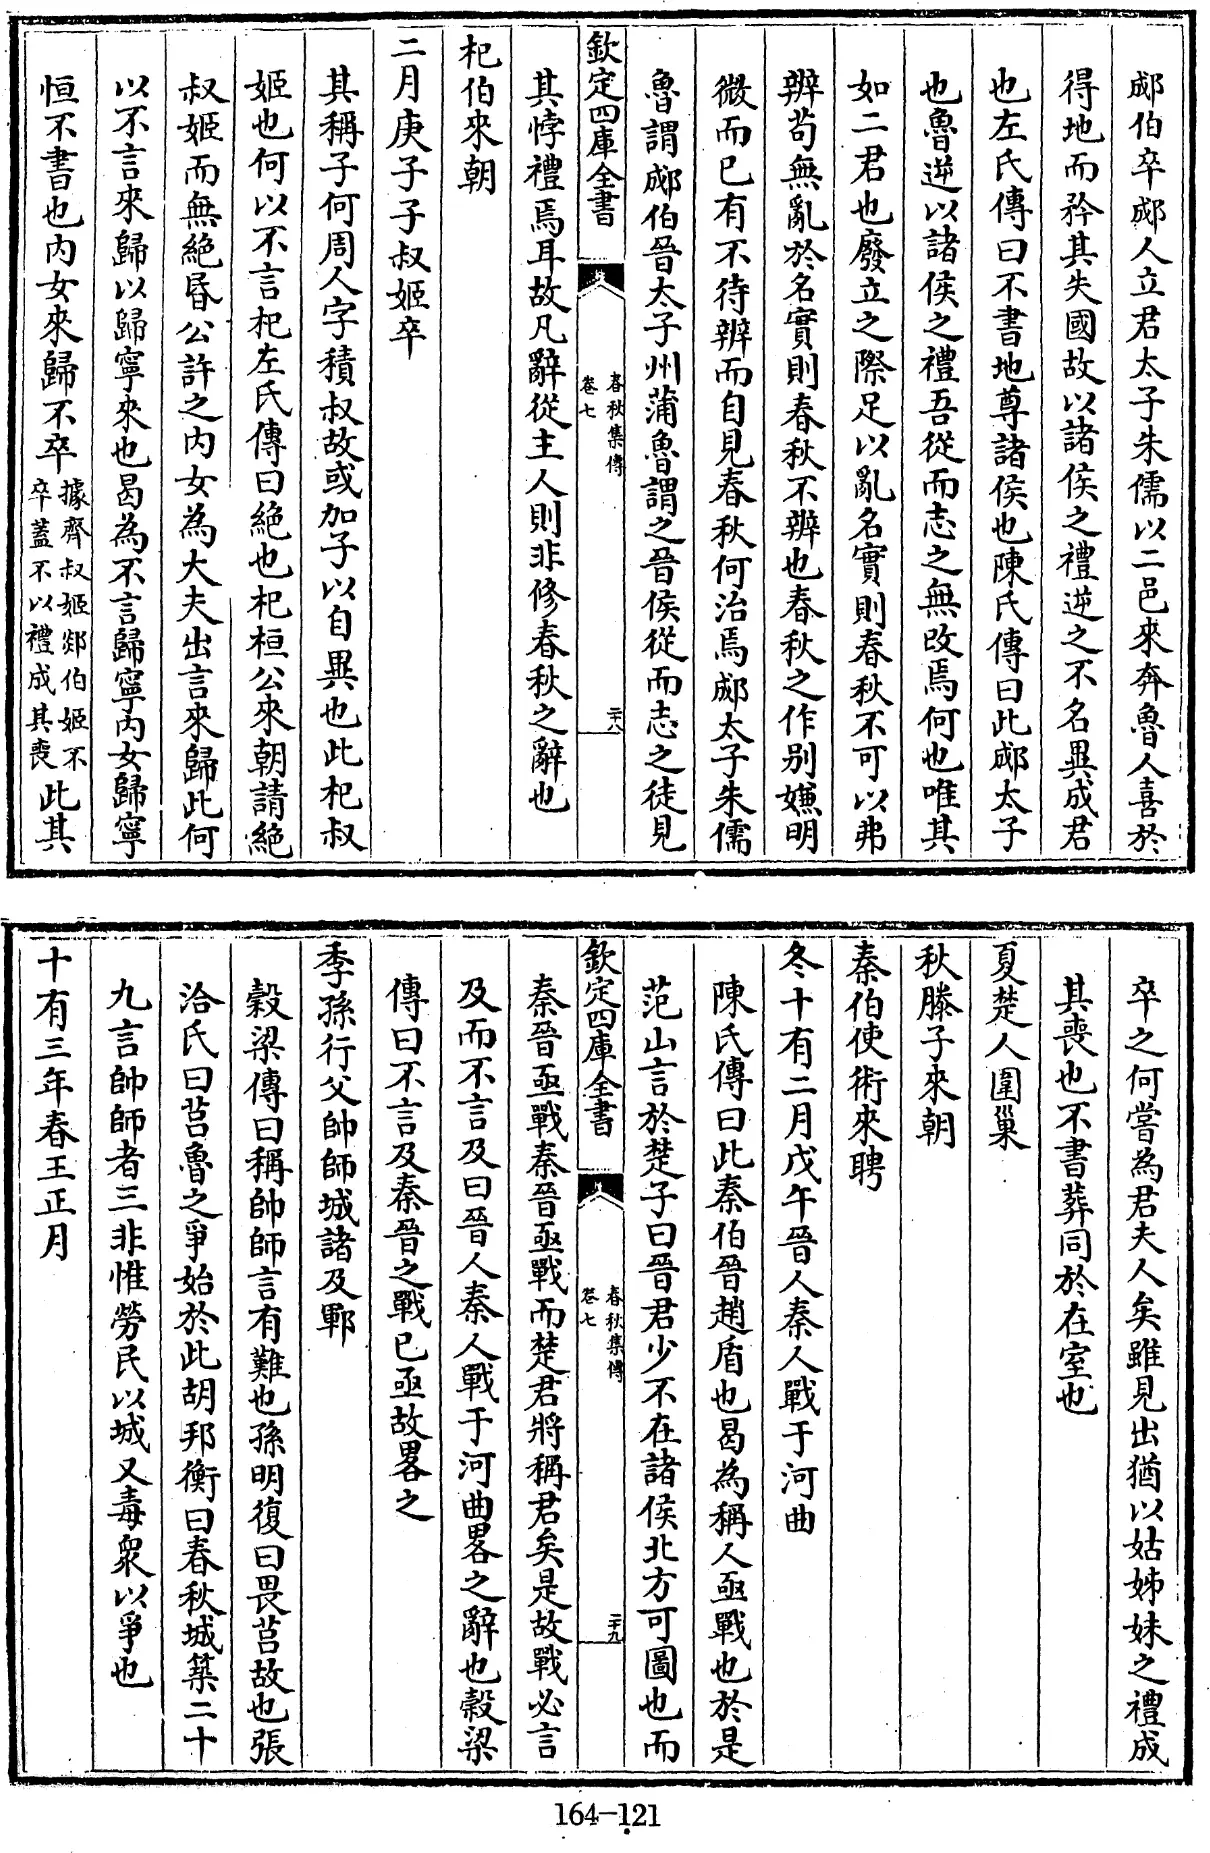 郕伯卒郕人立君太子朱儒以二邑來奔魯人喜於
得地而矜其失國故以諸侯之禮逆之不名異成君
也左氏傳曰不書地尊諸侯也陳氏傳曰此郕太子
也魯逆以諸侯之禮吾從而志之無改焉何也唯其
如二君也廢立之際足以亂名實則春秋不可以弗
辨茍無亂於名實則春秋不辨也春秋之作别嫌明
微而已有不待辨而自見春秋何治焉郕太子朱儒
魯謂郕伯晉太子州蒲魯謂之晉侯從而志之徒見
欽定四庫全書
春秋集傳
卷七
二十八
其悖禮焉耳故凡辭從主人則非修春秋之辭也
杞伯來朝
二月庚子子叔姬卒
其稱子何周人字積叔故或加子以自異也此杞叔
姬也何以不言杞左氏傳曰絶也杞桓公來朝請絶
叔姬而無絶昏公許之内女為大夫出言來歸此何
以不言來歸以歸寧來也曷為不言歸寧内女歸寧
恒不書也内女來歸不卒據齊叔姬郯伯姬不卒蓋不以禮成其喪此其
卒之何嘗為君夫人矣雖見出猶以姑姊妹之禮成
其喪也不書葬同於在室也
夏楚人圍巢
秋滕子來朝
秦伯使術來聘
冬十有二月戊午晉人秦人戰于河曲
陳氏傳曰此秦伯晉趙盾也曷為稱人亟戰也於是
范山言於楚子曰晉君少不在諸侯北方可圖也而
欽定四庫全書
春秋集傳
卷七
二十九
秦晉亟戰秦晉亟戰而楚君將稱君矣是故戰必言
及而不言及曰晉人秦人戰于河曲畧之辭也穀梁
傳曰不言及秦晉之戰已亟故畧之
季孫行父帥師城諸及鄆
穀梁傳曰稱帥師言有難也孫明復曰畏莒故也張
洽氏曰莒魯之爭始於此胡邦衡曰春秋城築二十
九言帥師者三非惟勞民以城又毒衆以爭也
十有三年春王正月
164-121